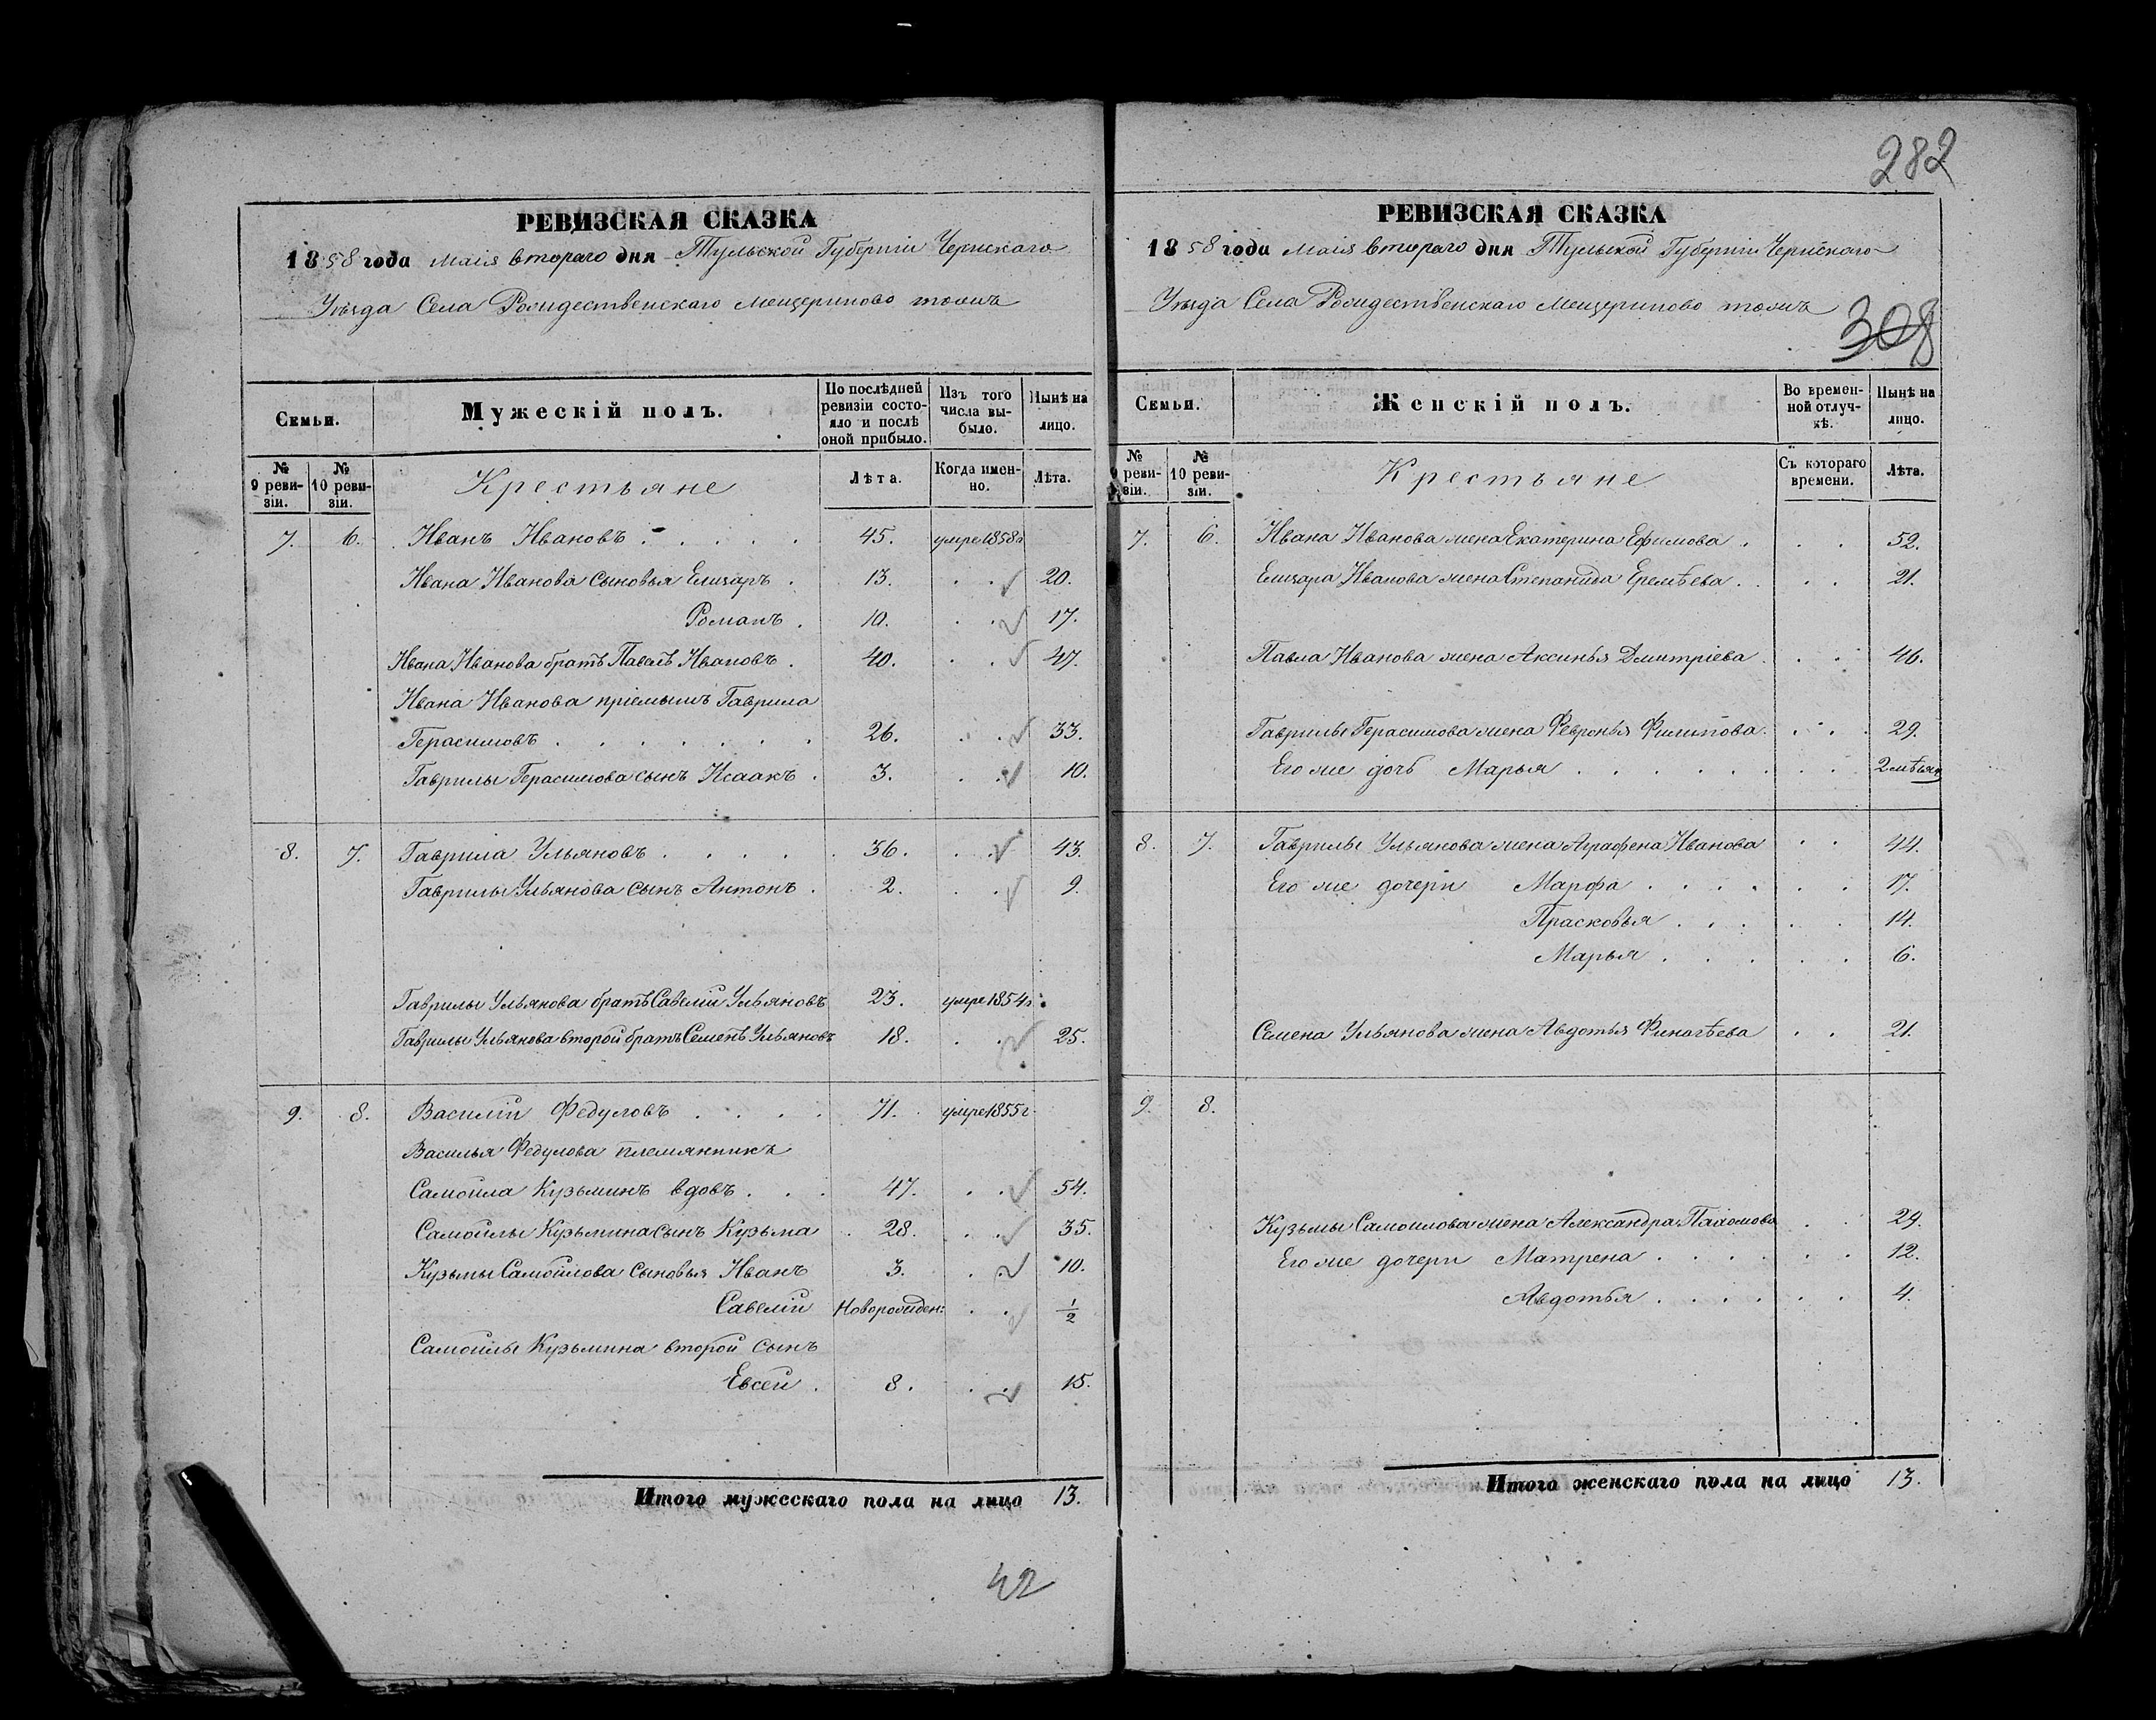 282
РЕВИЗСКАЯ СКАЗКА
1858 года Маія втораго дня Тульской Губерніи Чернскаго
Уѣзда Села Рождественскаго Мещериново тожъ
Семьи.
Мужескій полъ.
По послѣдней ревизіи состояло и послѣ оной прибыло.
Изъ того числа выбыло.
Нынѣ на лицо.
№ 9 ревизіи.
№ 10 ревизіи.
Крестьяне
Лѣта.
Когда именно.
Лѣта.
7. 6. Иванъ Ивановъ . . . . . 45. умре 1858 г
Ивана Иванова сыновья Елизаръ . 13. . . 20.
Романъ . 10. . . 17.
Ивана Иванова братъ Павелъ Ивановъ . 40. . . 47.
Ивана Иванова пріемышъ Гаврила
Герасимовъ . . . . . . . 26. . . 33.
Гаврилы Герасимова сынъ Исаакъ . 3. . . 10.
8. 7. Гаврила Ульяновъ . . . . . 36. . . 43.
Гаврилы Ульянова сынъ Антонъ . 2. . . 9.
Гаврилы Ульянова братъ Савелій Ульяновъ 23. умре 1854 г.
Гаврилы Ульянова второй братъ Семенъ Ульяновъ 18. . . 25.
9. 8. Василій Федуловъ . . . . 71. умре 1855 г.
Василья Федулова племянникъ
Самойла Кузьминъ вдовъ . . . 47. . . 54.
Самойлы Кузьмина сынъ Кузьма . 28. . . 35.
Кузьмы Самойлова сыновья Иванъ 3. . . 10.
Савелій Новорожден: . . 1/2
Самойлы Кузьмина второй сынъ
Евсей . 8. . . 15.
Итого мужескаго пола на лицо 13.
42
РЕВИЗСКАЯ СКАЗКА
1858 года Маія втораго дня Тульской Губерніи Чернскаго
Уѣзда Села Рождественскаго Мещериново тожъ
308
Семьи.
Женскій полъ.
Во временной отлучкѣ.
Нынѣ на лицо.
№ 9 ревизіи.
№ 10 ревизіи.
Крестьяне
Съ котораго времени.
Лѣта.
7. 6. Ивана Иванова жена Екатерина Ефимова . . . 52.
Елизара Иванова жена Степанида Еремѣева . . . 21.
Павла Иванова жена Аксинья Дмитріева . . . 46.
Гаврилы Герасимова жена Февронья Филипова . . . 29.
Его же дочь Марья . . . . . . . . 2
8. 7. Гаврилы Ульянова жена Аграфена Иванова . . 44.
Его же дочери Марфа . . . . . . 17.
Прасковья . . . . . 14.
Марья . . . . . 6.
Семена Ульянова жена Авдотья Финагѣева . . 21.
9. 8.
Кузьмы Самойлова жена Александра Пахомова . . 29.
Его же дочери Матрена . . . . . . 12.
Авдотья . . . . . . 4.
Итого женскаго пола на лицо 13.